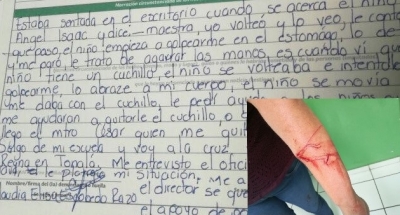 Narración circunstanciada de
Estaba sentada en el escritorio cuando, se acerca el niño
Angel Isaac y dice.- maestra, yo volteo y lo veo, le conte
que paso, el niño empieza a golpearme en el estomago, lo de
y me paró, le trato de agarrar las manos, es cuando vi que
niño tiene un cuchillo, el niño se volteaba e intentó
golpearme, lo abraze a mi cuerpo, el niño se movia
me daba con el cuchillo, le pedi
me ayudaran a quitarle el cuchillo, o
llego el mtro Cesar quien me quit
Salgo de mi escuela y voy a la cruz
Reina en Tonalá, Me entrevisto el ofici
le platico mi situación; Me a
Nombre/firma del
el director se que
Razo
el apoyo de